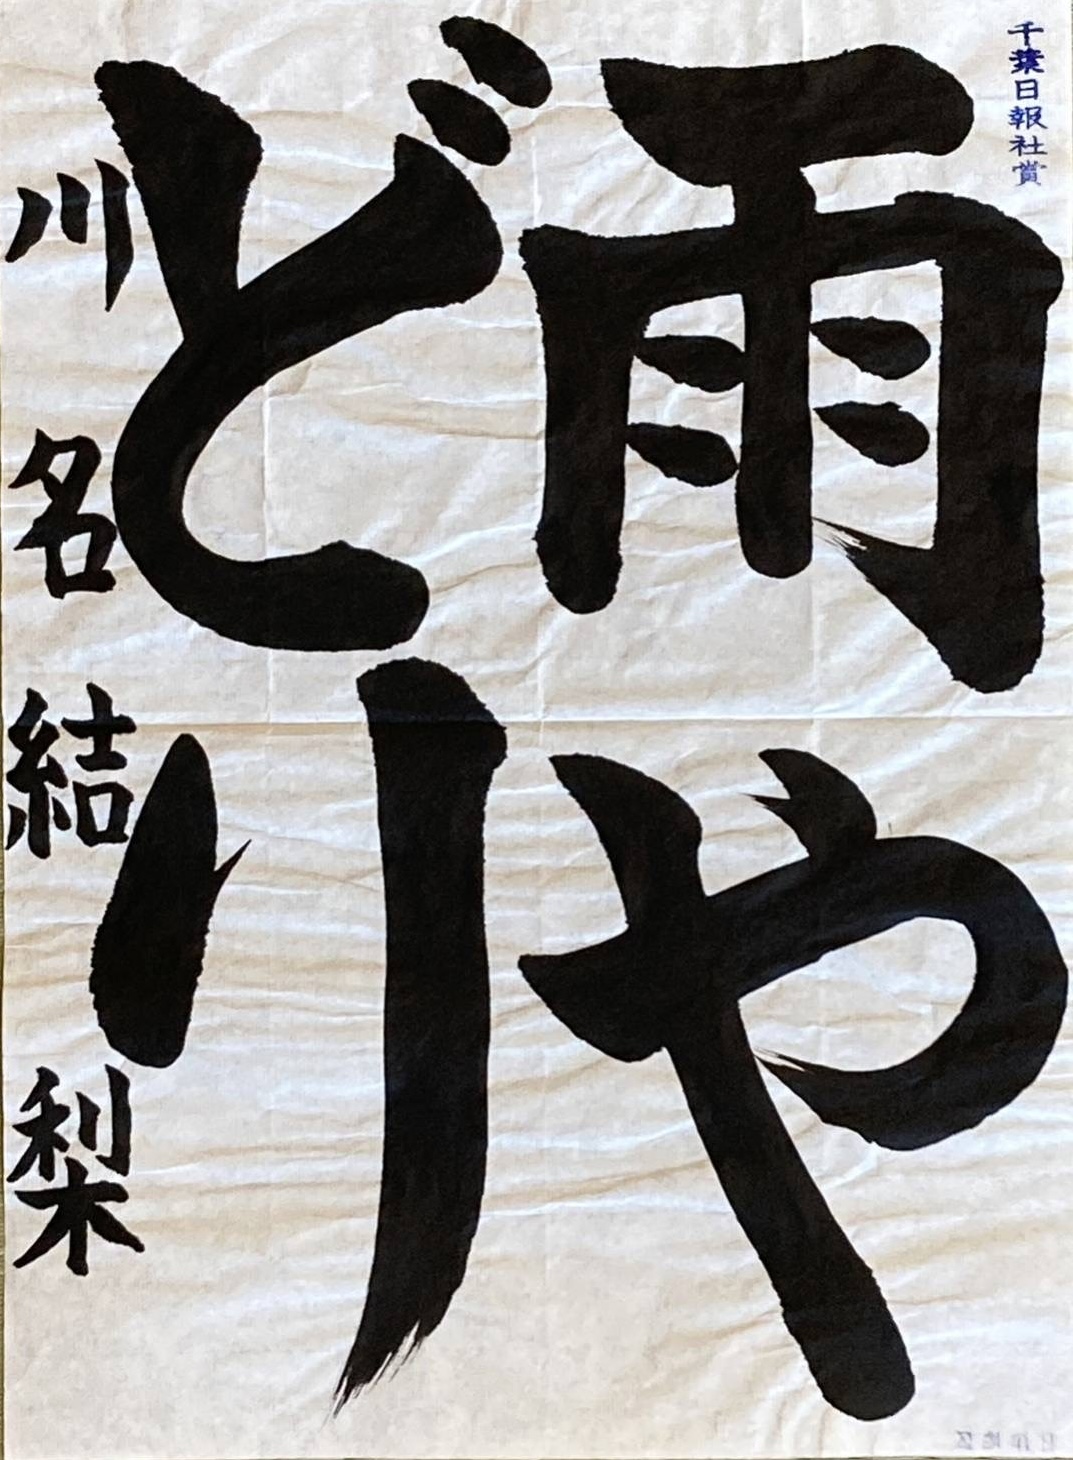 千葉日報社賞
雨や
どり
川名結梨